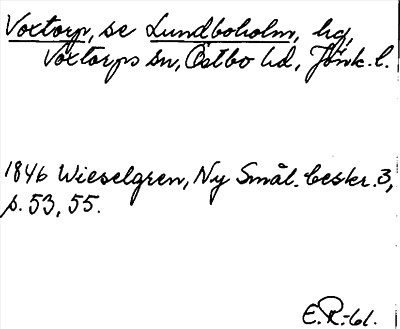 Voxtorp, se Lundboholm, hg,
Voxtorps sn, Östbo hd, Jönk. l.
1846 Wieselgren, Ny Smål. beskr. 3,
s. 53, 55.
E.R.-61.